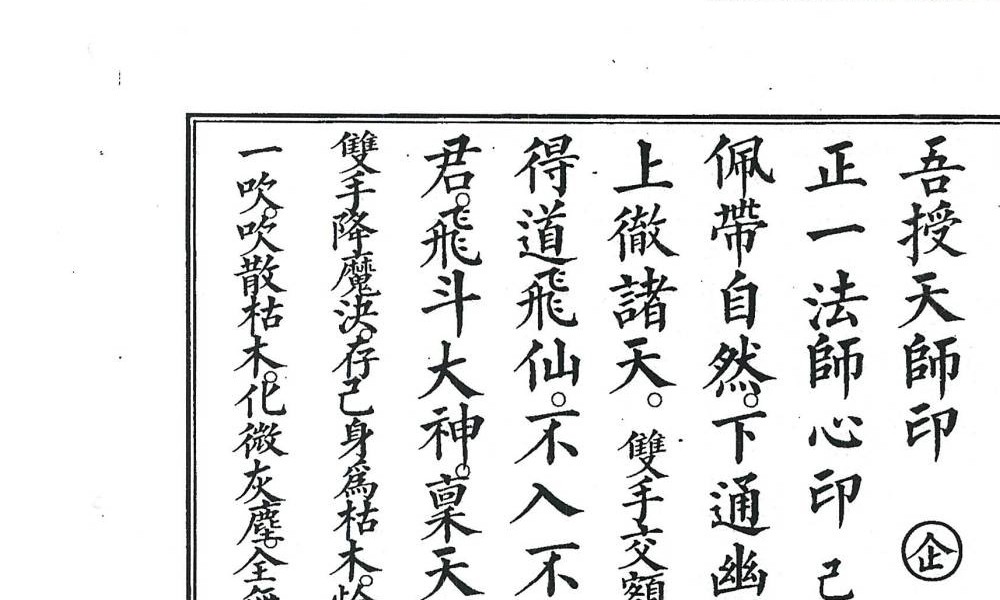 吾授天師印 企
正一法師心印 己
佩帶自然。下通幽
上徹諸天。雙手交額
得道飛仙。不入不
君。飛斗大神。稟天
雙手降魔決。存己身爲枯木。
一吹。吹散枯木。化微灰塵。全無